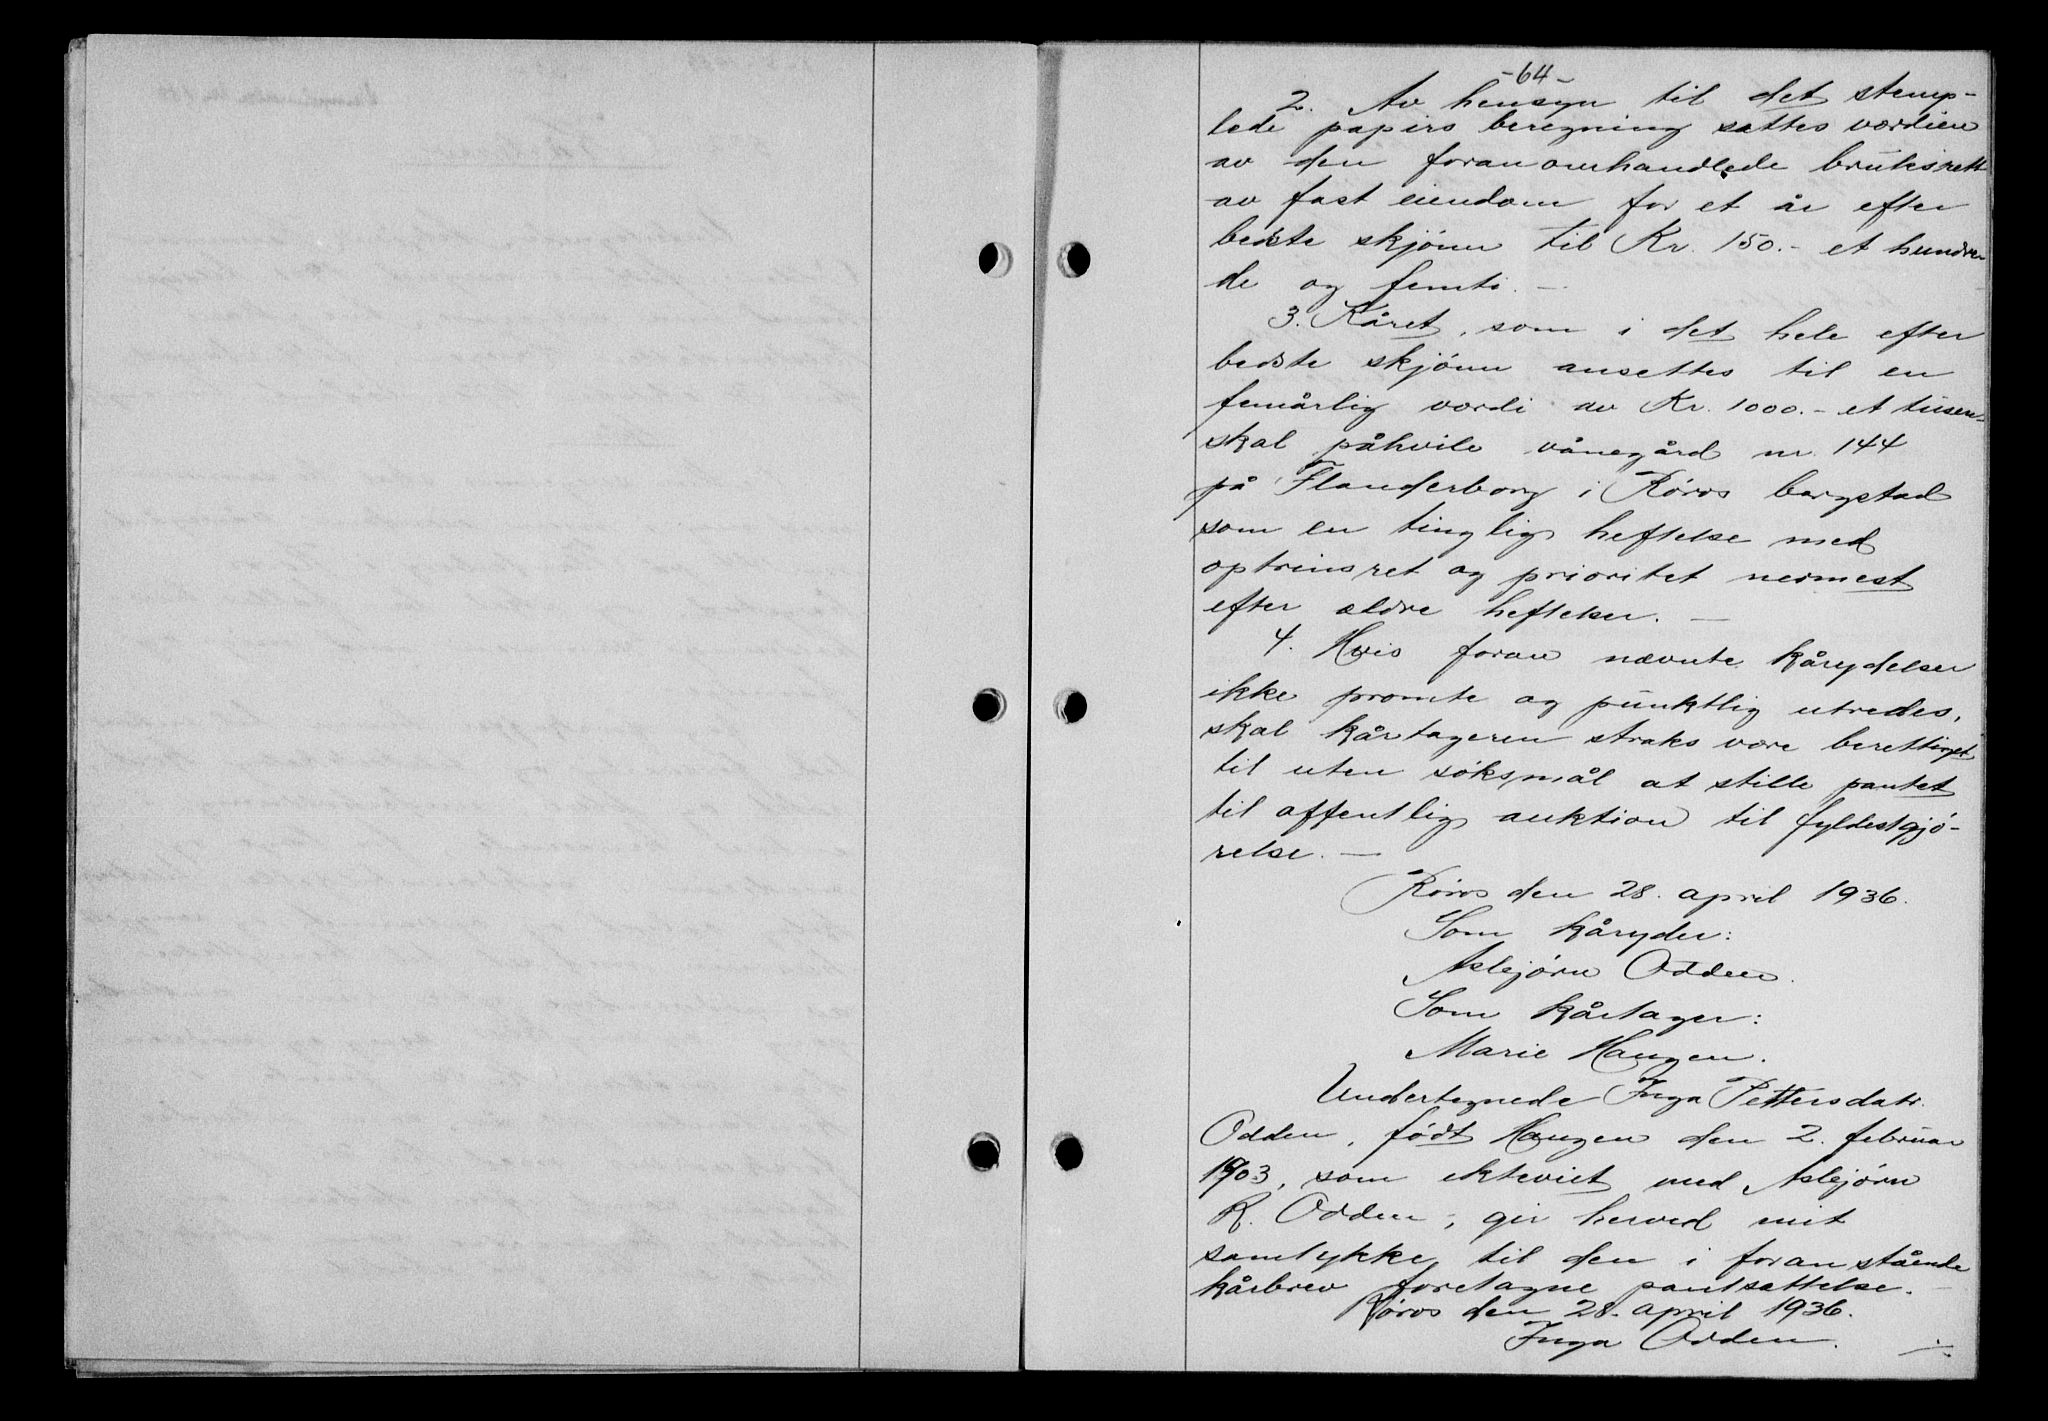 -64-
2. Av hensyn til det stemp-
lede papirs beregning settes værdien
av den foran omhandlede bruksrett
av fast eiendom for et år efter
bedste skjønn til Kr. 150.- et hundre-
de og femti. -
3. Kåret, som i det hele efter
bedste skjønn ansettes til en
femårlig værdi av Kr. 1000.- et tusen-
skal påhvile vånegård nr. 144
på Flanderborg i Røros bergstad
som en tinglig heftelse med
optrinsret og prioritet nermest
efter ældre heftelser. -
4. Hvis foran nævnte kårydelser
ikke promte og punktlig utredes,
skal kårtageren straks være berettiget
til uten søksmål at stille pantet
til offentlig auktion til fyldestgjø-
relse. -
Røros den 28. april 1936.
Som kåryder:
Asbjørn Odden.
Som kårtager:
Marie Haugen.
Undertegnede Inga Pettersdatr.
Odden, født Haugen den 2. februar
1903, som ekteviet med Asbjørn
R. Odden, gir herved mit
samtykke til den i foran stående
kårbrev foretagne pantsettelse. -
Røros den 28. april 1936.
Inga Odden.